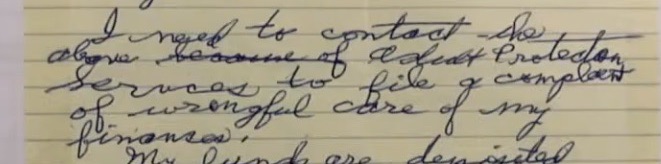 I need to contact the
above because of Adult Protection
services to file a complaint
of wrongful care of my
finances.
My funds are deposited